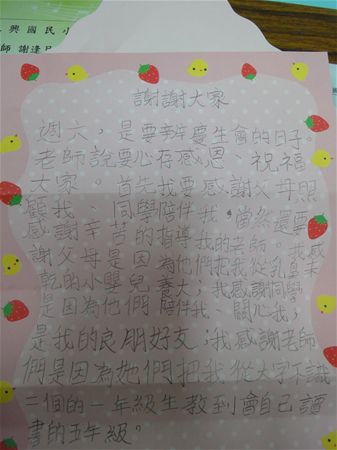 興國民小
師 謝逢
謝謝大家
週六,是要辦慶生會的日子。
老師說要心存感恩、祝福
大家。首先我要感謝父母照
顧我、同學陪伴我,當然還要
感謝辛苦的指導我的老師。我感
謝父母是因為他們把我從乳臭未
乾的小嬰兒養大;我感謝同學
是因為他們陪伴我、關心我;
是我的良朋好友;我感謝老師
們是因為她們把我從大字不識
二個的一年級生教到會自己讀
書的五年級。